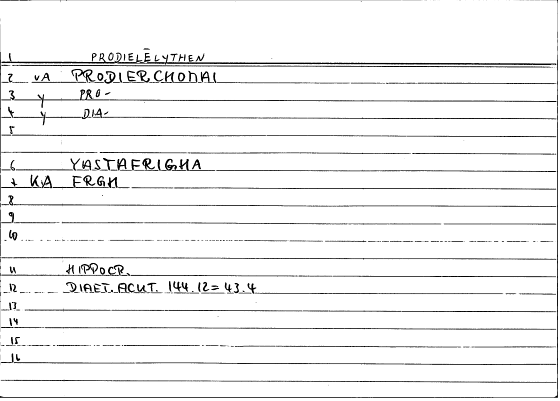 1 PRODIELĒLYTHEN
2 vA PRODIERCHOMAI
3 y PRO-
4 y DIA-
5
6 YASTAFRIGHA
7 KA FRGH
8
9
10
11 HIPPOCR.
12 DIAET. ACUT. 144.12 = 43.4
13
14
15
16